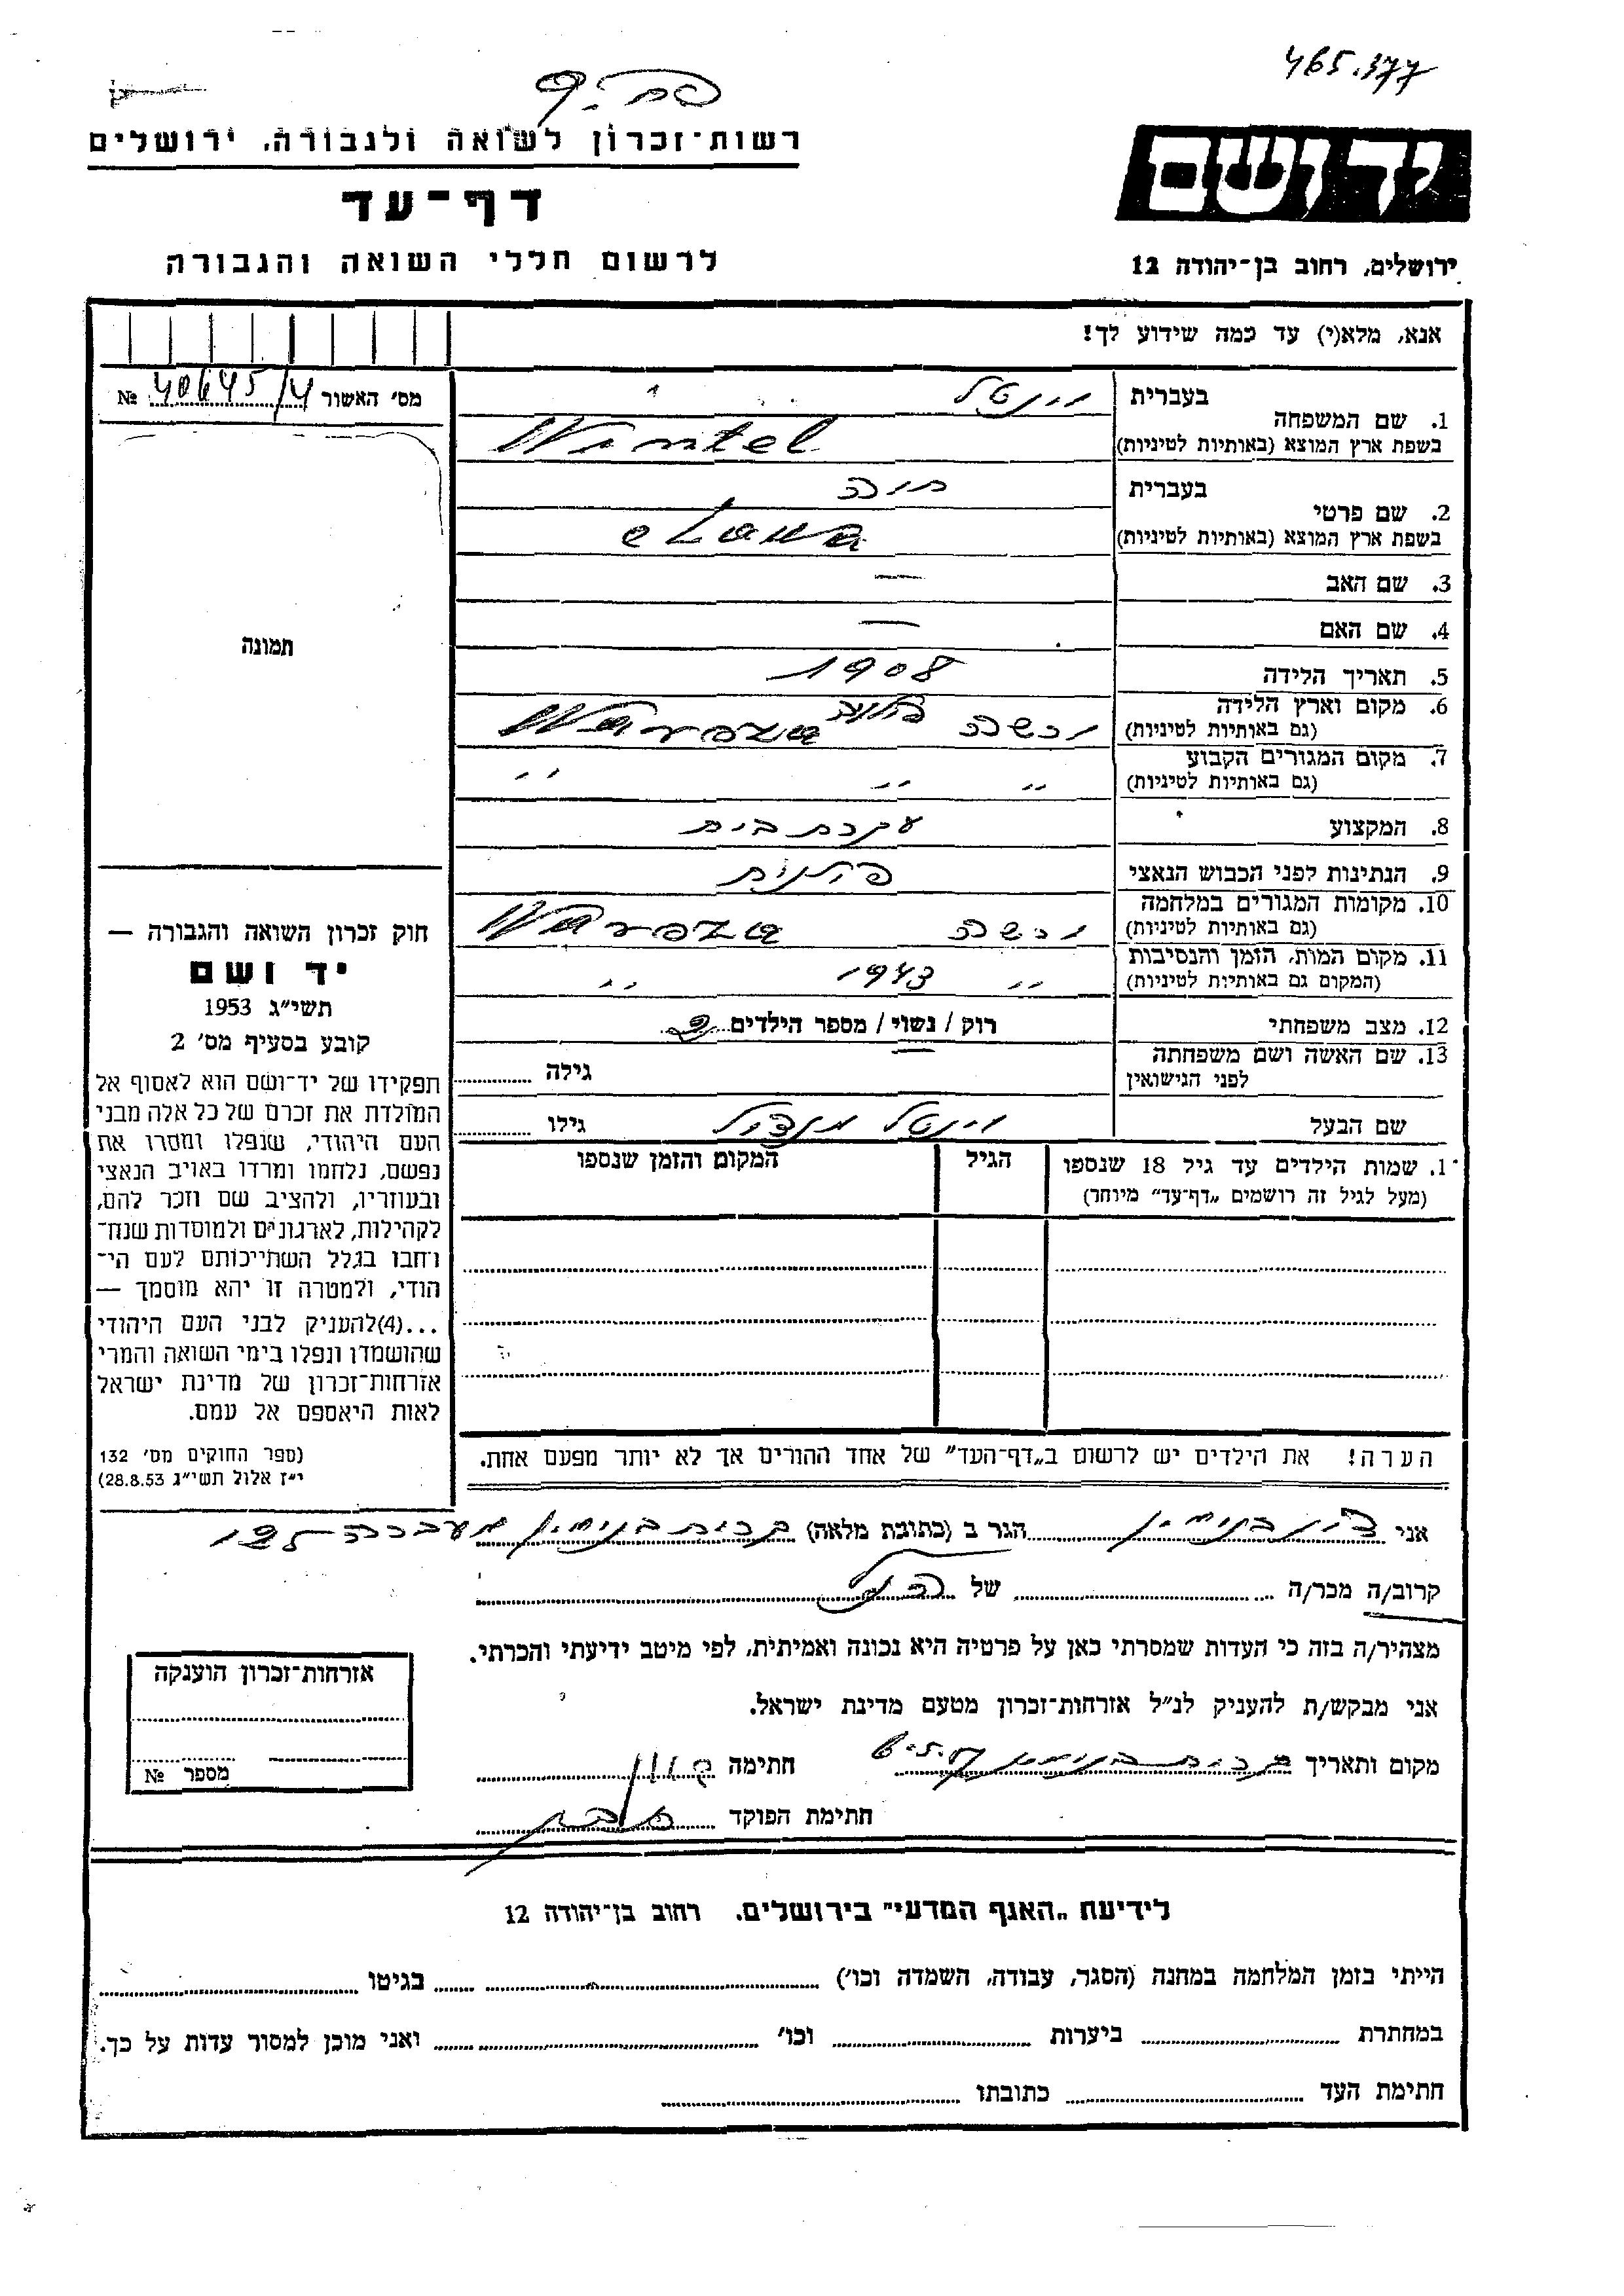 465.377
רשות-זכרון לשואה ולגבורה, ירושלים
יד ושם
דף-עד
לרשום חללי השואה והגבורה
ירושלים, רחוב בן-יהודה 12
אנא, מלא(י) עד כמה שידוע לך!
מס' האשור 40645/4 №
תמונה
בעברית וינטל
1. שם המשפחה
בשפת ארץ המוצא (באותיות לטיניות) Wintel
בעברית חוה
2. שם פרטי
בשפת ארץ המוצא (באותיות לטיניות) eLawa
3. שם האב —
4. שם האם —
5. תאריך הלידה 1908
6. מקום וארץ הלידה
(גם באותיות לטיניות) ורשה פולניה Waroza
7. מקום המגורים הקבוע
(גם באותיות לטיניות) ״ ״ ״
8. המקצוע עקרת בית
9. הנתינות לפני הכבוש הנאצי פולנית
10. מקומות המגורים במלחמה
(גם באותיות לטיניות) ורשה Waroza
11. מקום המות, הזמן והנסיבות
(המקום גם באותיות לטיניות) ״ 1943 ״
12. מצב משפחתי רוק / נשוי / מספר הילדים 2
13. שם האשה ושם משפחתה
לפני הנישואין גילה
שם הבעל וינטל מנדל גילו
1. שמות הילדים עד גיל 18 שנספו הגיל המקום והזמן שנספו
(מעל לגיל זה רושמים „דף-עד" מיוחד)
הערה! את הילדים יש לרשום ב„דף-העד" של אחד ההורים אך לא יותר מפעם אחת.
חוק זכרון השואה והגבורה —
יד ושם
תשי״ג 1953
קובע בסעיף מס' 2
תפקידו של יד-ושם הוא לאסוף אל
המולדת את זכרם של כל אלה מבני
העם היהודי, שנפלו ומסרו את
נפשם, נלחמו ומרדו באויב הנאצי
ובעוזריו, ולהציב שם וזכר להם,
לקהילות, לארגונים ולמוסדות שנח-
רחבו בגלל השתייכותם לעם הי-
הודי, ולמטרה זו יהא מוסמך —
...(4)להעניק לבני העם היהודי
שהושמדו ונפלו בימי השואה והמרי
אזרחות-זכרון של מדינת ישראל
לאות היאספם אל עמם.
(ספר החוקים מס' 132
י״ז אלול תשי״ג 28.8.53)
אני בנימין הגר ב (כתובת מלאה) בנימין מעברה
קרוב/ה מכר/ה של הנ״ל
מצהיר/ה בזה כי העדות שמסרתי כאן על פרטיה היא נכונה ואמיתית, לפי מיטב ידיעתי והכרתי.
אני מבקש/ת להעניק לנ״ל אזרחות-זכרון מטעם מדינת ישראל.
מקום ותאריך חתימה
חתימת הפוקד
אזרחות-זכרון הוענקה
מספר №
לידיעת „האגף המדעי" בירושלים. רחוב בן-יהודה 12
הייתי בזמן המלחמה במחנה (הסגר, עבודה, השמדה וכו') בגיטו
במחתרת ביערות וכו' ואני מוכן למסור עדות על כך.
חתימת העד כתובתו